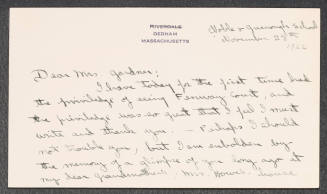 RIVERDALE
DEDHAM
MASSACHUSETTS
Noble & Greenough School
November 29th
1922
Dear Mrs. Gardner;
I have today for the first time had
the priviledge of seeing Fenway Court, and
the priviledge was so great that I feel I must
write and thank you. — Perhaps I should
not trouble you, but I am emboldened by
the memory of a glimpse of you long ago at
my dear Grandmother's Mrs. House